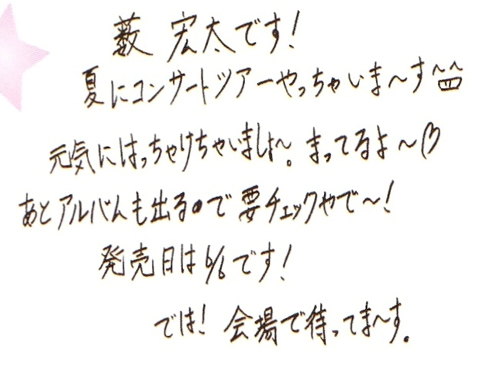 薮 宏太です!
夏にコンサートツアーやっちゃいま〜す^皿^
元気にはっちゃけちゃいましょ〜。まってるよ〜♡
あとアルバムも出るので要チェックやで〜!
発売日は6/6です!
では! 会場で待ってま〜す。